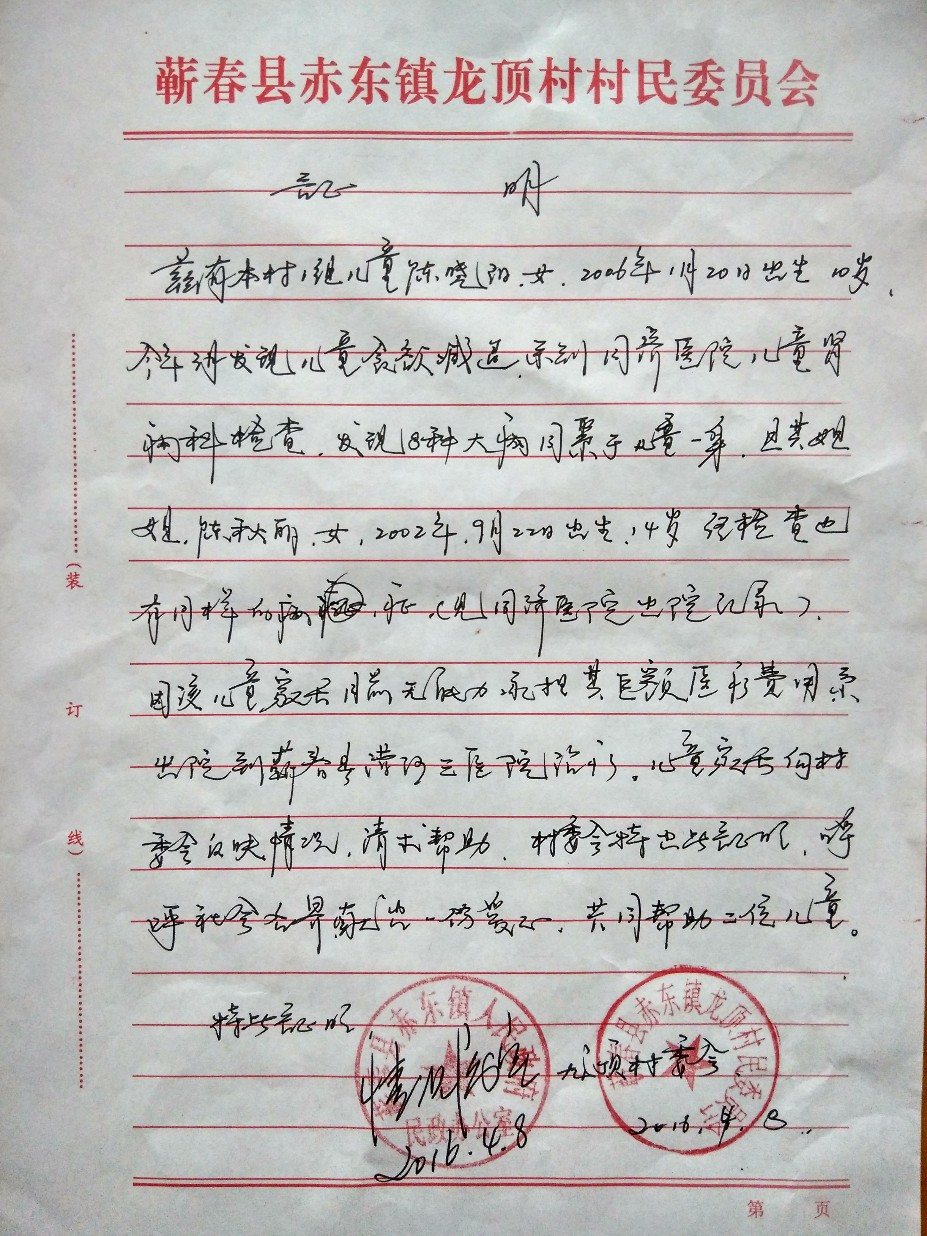 蕲春县赤东镇龙顶村村民委员会
证 明
兹有本村1组儿童陈晓阳,女,2006年1月20日出生 10岁,
今年3月发现儿童食欲减退,来到同济医院儿童肾
病科检查,发现8种大病同聚于儿童一身,且其姐
姐,陈秋丽,女,2002年,9月22日出生,14岁 经检查也
有同样的病症(见同济医院出院记录)。
因该儿童家长目前无能力承担其巨额医疗费用系
出院到蕲春县漕河三医院治疗。儿童家长向村
委会反映情况,请求帮助,村委会特出此证明,呼
呼社会各界献出一份爱心,共同帮助二位儿童。
特此证明
情况属实
2016.4.8
龙顶村委会
2016.4.8
县赤东镇人民政府
民政办公室
蕲春县赤东镇龙顶村村民委员会
(装
订
线)
第 页